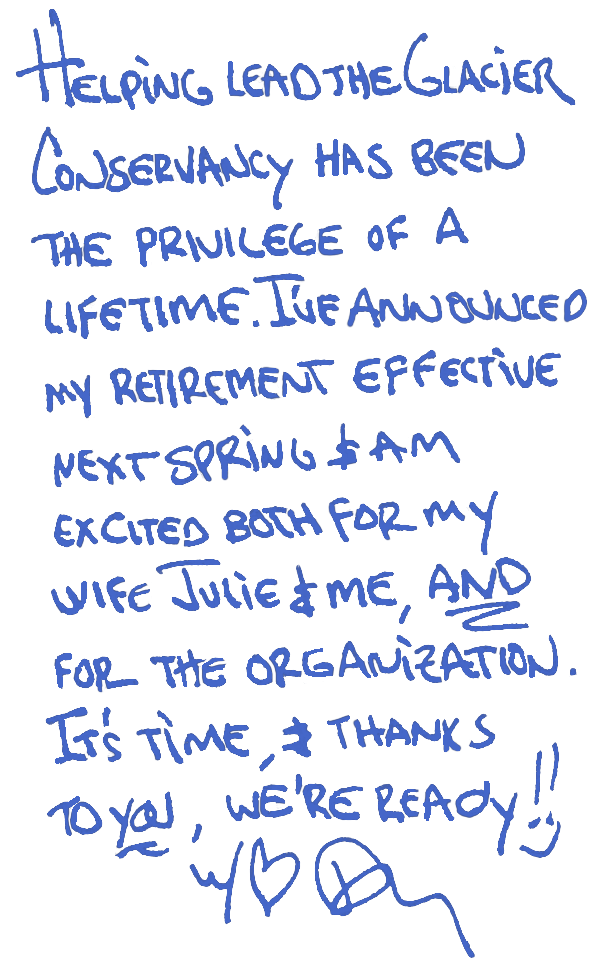 HELPING LEAD THE GLACIER
CONSERVANCY HAS BEEN
THE PRIVILEGE OF A
LIFETIME. I'VE ANNOUNCED
MY RETIREMENT EFFECTIVE
NEXT SPRING & AM
EXCITED BOTH FOR MY
WIFE JULIE & ME, AND
FOR THE ORGANIZATION.
IT'S TIME, & THANKS
TO YOU, WE'RE READY!!
W/ ♡